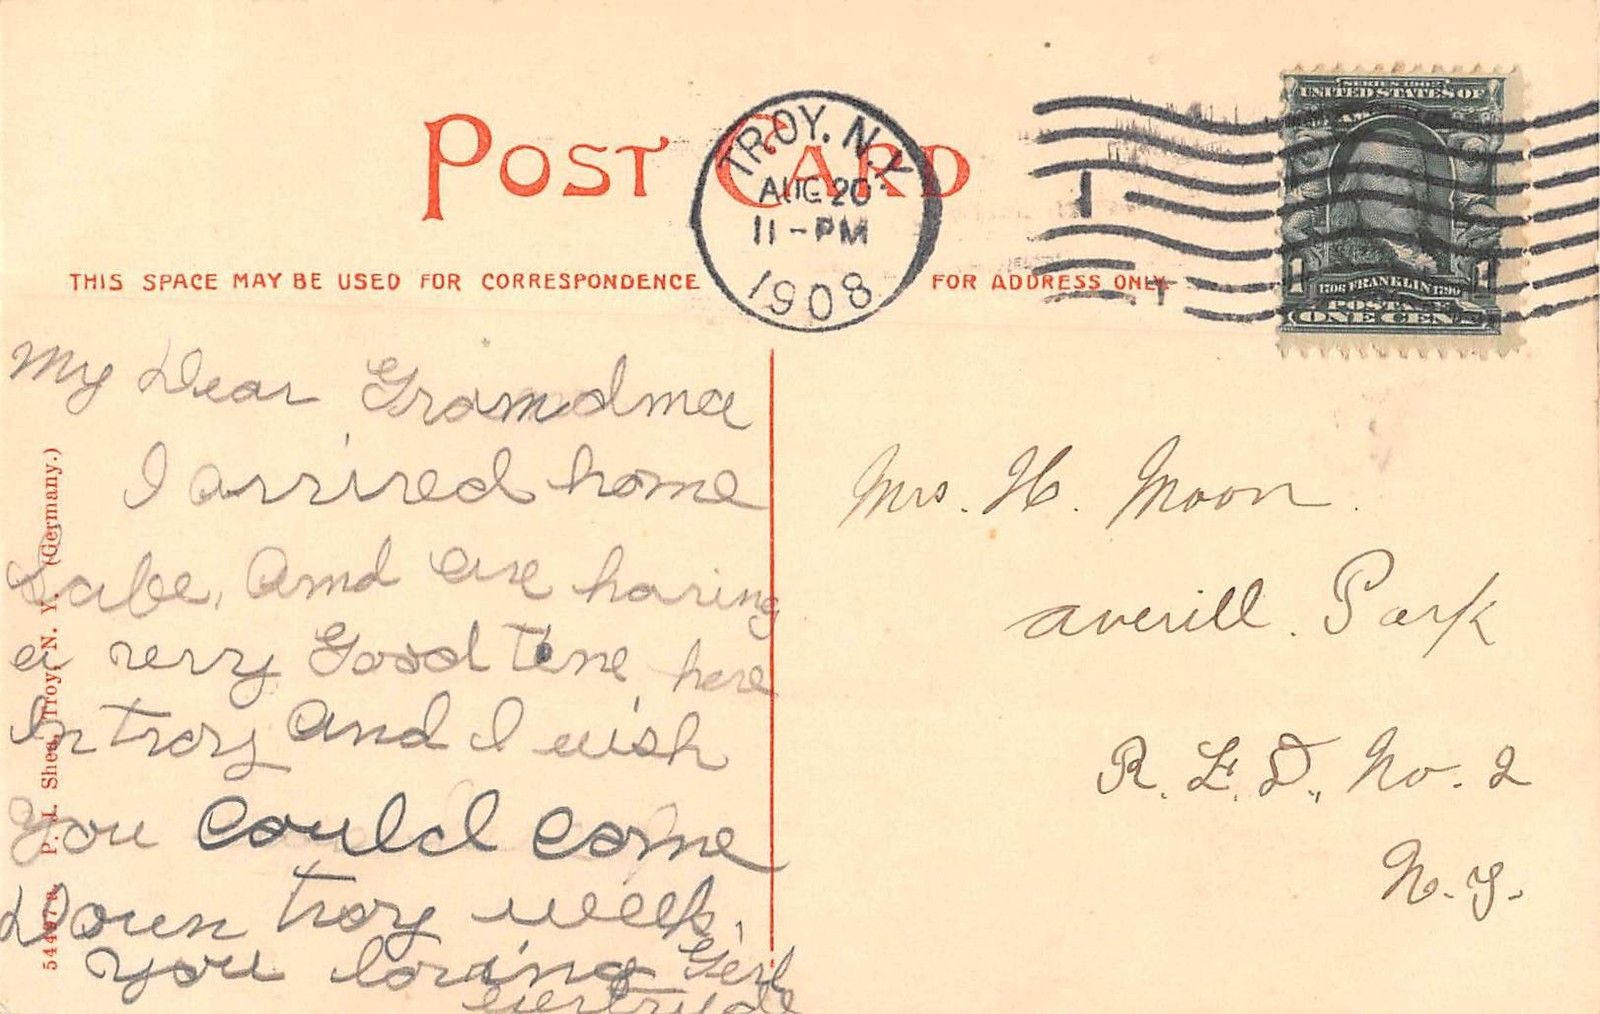 POST CARD
TROY. N.Y.
AUG 20
11-PM
1908
SERIES 1902
UNITED STATES OF
AMERICA
1706 FRANKLIN 1790
1 1
POSTAGE
ONE CENT
THIS SPACE MAY BE USED FOR CORRESPONDENCE
FOR ADDRESS ONLY
My Dear Gramdma
I arrived home
Safe, and are having
a very Good time here
In troy and I wish
you could come
Down troy week.
you loving Girl
Gertrude
Mrs. H. Moon.
Averill Park
R. F. D., No. 2
N. Y.
P. J. Shea, Troy, N. Y. (Germany.)